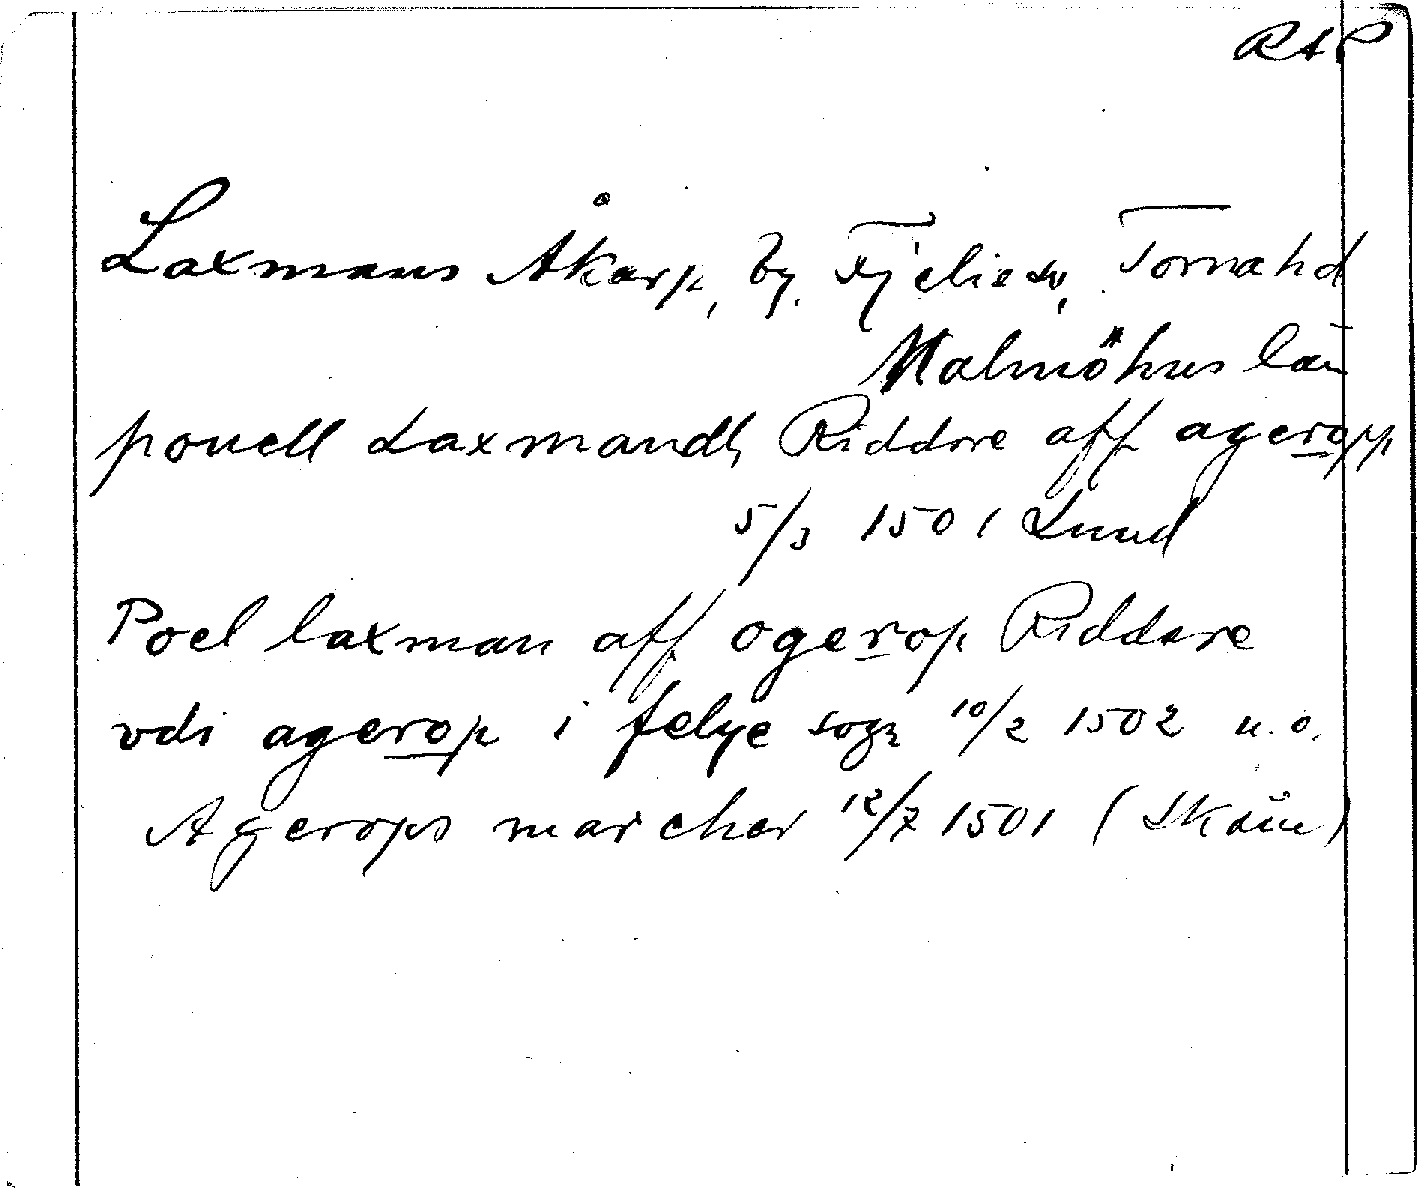 RAP
Laxmans Åkarp, by, Fjelie sn, Torna hd
Malmöhus län
pouell Laxmandh Riddere aff ageropp
5/3 1501 Lund
Poel laxman aff ogerop Riddere
vdi agerop i felye sogn 10/2 1502 u.o.
Agerops marcher 12/7 1501 (Skåne)